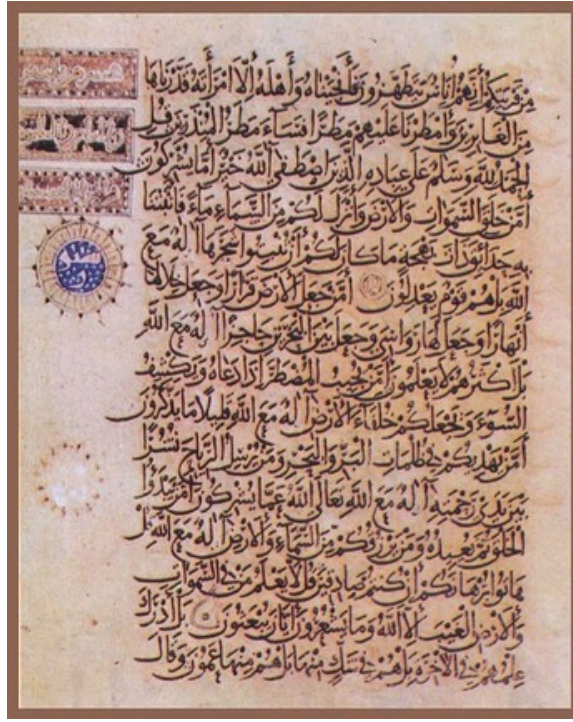 من قريتكم إنهم أناس يتطهرون فأنجيناه وأهله إلا امرأته قدرناها
من الغابرين وأمطرنا عليهم مطرا فساء مطر المنذرين قل
الحمد لله وسلام على عباده الذين اصطفى آلله خير أما يشركون
أمن خلق السموات والأرض وأنزل لكم من السماء ماء فأنبتنا
به حدائق ذات بهجة ما كان لكم أن تنبتوا شجرها أإله مع
الله بل هم قوم يعدلون أمن جعل الأرض قرارا وجعل خلالها
أنهارا وجعل لها رواسي وجعل بين البحرين حاجزا أإله مع الله
بل أكثرهم لا يعلمون أمن يجيب المضطر إذا دعاه ويكشف
السوء ويجعلكم خلفاء الأرض أإله مع الله قليلا ما يذكرون
أمن يهديكم في ظلمات البر والبحر ومن يرسل الرياح نشرا
بين يدي رحمته أإله مع الله تعالى الله عما يشركون أمن يبدؤا
الخلق ثم يعيده ومن يرزقكم من السماء والأرض أإله مع الله قل
هاتوا برهانكم إن كنتم صادقين قل لا يعلم من في السموات
والأرض الغيب إلا الله وما يشعرون أيان يبعثون بل أدرك
علمهم في الآخرة بل هم في شك منها بل هم منها عمون وقال